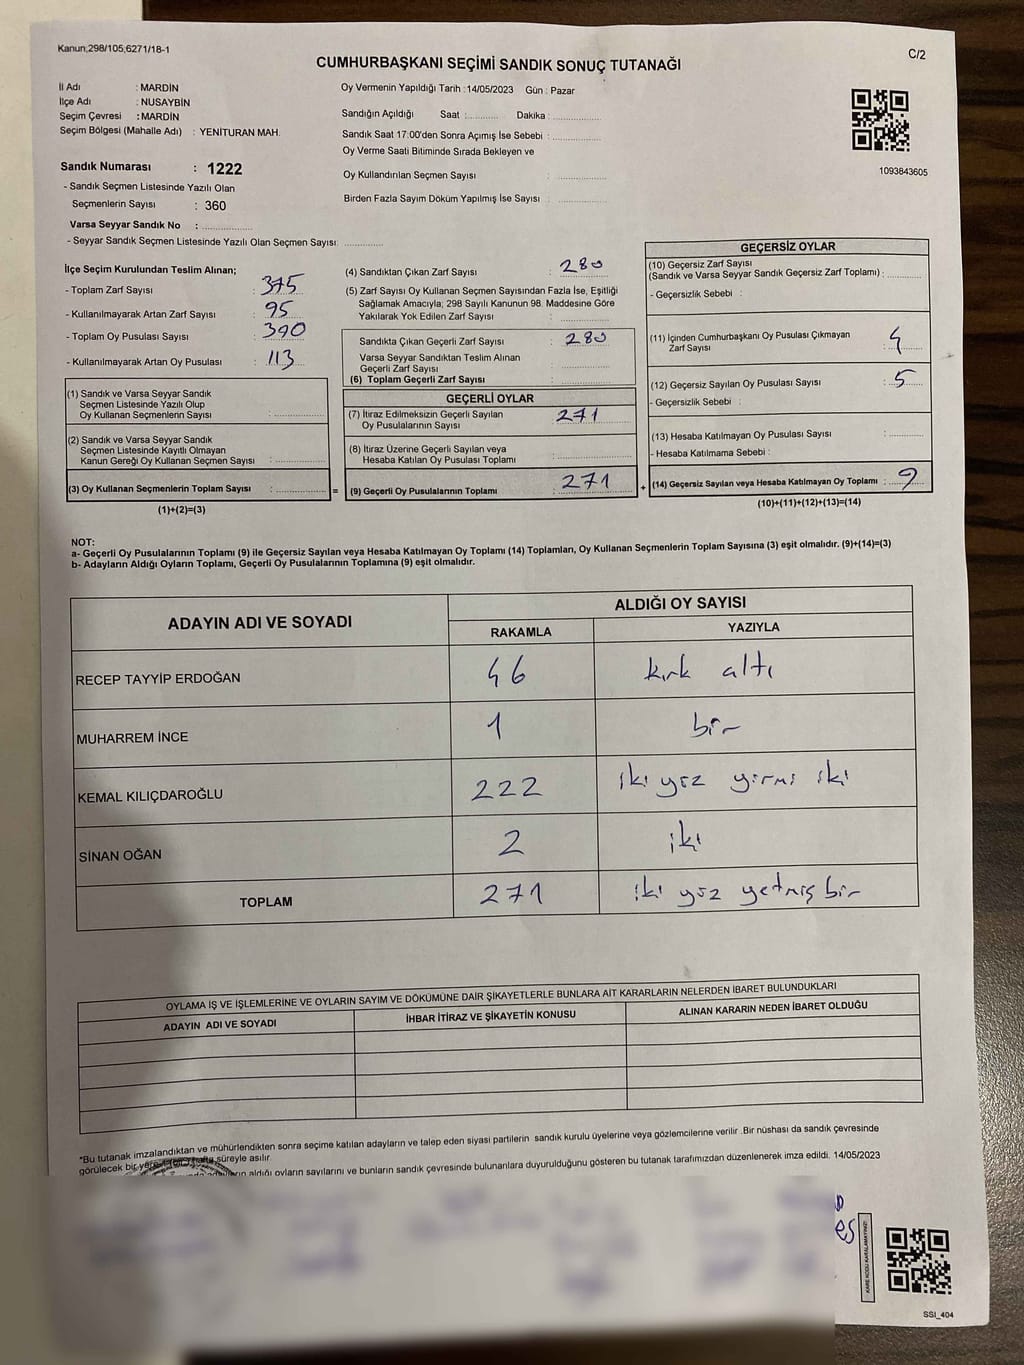 Kanun,298/105,6271/18-1
C/2
CUMHURBAŞKANI SEÇİMİ SANDIK SONUÇ TUTANAĞI
İl Adı : MARDİN
İlçe Adı : NUSAYBİN
Seçim Çevresi : MARDİN
Seçim Bölgesi (Mahalle Adı) : YENİTURAN MAH.
Sandık Numarası : 1222
- Sandık Seçmen Listesinde Yazılı Olan
Seçmenlerin Sayısı : 360
Varsa Seyyar Sandık No :
- Seyyar Sandık Seçmen Listesinde Yazılı Olan Seçmen Sayısı:
Oy Vermenin Yapıldığı Tarih :14/05/2023 Gün : Pazar
Sandığın Açıldığı Saat : Dakika :
Sandık Saat 17:00'den Sonra Açımış İse Sebebi :
Oy Verme Saati Bitiminde Sırada Bekleyen ve
Oy Kullandırılan Seçmen Sayısı :
Birden Fazla Sayım Döküm Yapılmış İse Sayısı :
1093843605
İlçe Seçim Kurulundan Teslim Alınan;
- Toplam Zarf Sayısı : 375
- Kullanılmayarak Artan Zarf Sayısı : 95
- Toplam Oy Pusulası Sayısı : 390
- Kullanılmayarak Artan Oy Pusulası : 113
(1) Sandık ve Varsa Seyyar Sandık
Seçmen Listesinde Yazılı Olup
Oy Kullanan Seçmenlerin Sayısı :
(2) Sandık ve Varsa Seyyar Sandık
Seçmen Listesinde Kayıtlı Olmayan
Kanun Gereği Oy Kullanan Seçmen Sayısı :
(3) Oy Kullanan Seçmenlerin Toplam Sayısı :
(1)+(2)=(3)
(4) Sandıktan Çıkan Zarf Sayısı : 280
(5) Zarf Sayısı Oy Kullanan Seçmen Sayısından Fazla İse, Eşitliği
Sağlamak Amacıyla; 298 Sayılı Kanunun 98. Maddesine Göre
Yakılarak Yok Edilen Zarf Sayısı :
Sandıkta Çıkan Geçerli Zarf Sayısı : 280
Varsa Seyyar Sandıktan Teslim Alınan
Geçerli Zarf Sayısı :
(6) Toplam Geçerli Zarf Sayısı :
GEÇERLİ OYLAR
(7) İtiraz Edilmeksizin Geçerli Sayılan
Oy Pusulalarının Sayısı : 271
(8) İtiraz Üzerine Geçerli Sayılan veya
Hesaba Katılan Oy Pusulası Toplamı :
= (9) Geçerli Oy Pusulalarının Toplamı : 271
GEÇERSİZ OYLAR
(10) Geçersiz Zarf Sayısı
(Sandık ve Varsa Seyyar Sandık Geçersiz Zarf Toplamı) :
- Geçersizlik Sebebi :
(11) İçinden Cumhurbaşkanı Oy Pusulası Çıkmayan
Zarf Sayısı : 4
(12) Geçersiz Sayılan Oy Pusulası Sayısı : 5
- Geçersizlik Sebebi :
(13) Hesaba Katılmayan Oy Pusulası Sayısı :
- Hesaba Katılmama Sebebi :
+ (14) Geçersiz Sayılan veya Hesaba Katılmayan Oy Toplamı : 9
(10)+(11)+(12)+(13)=(14)
NOT:
a- Geçerli Oy Pusulalarının Toplamı (9) ile Geçersiz Sayılan veya Hesaba Katılmayan Oy Toplamı (14) Toplamları, Oy Kullanan Seçmenlerin Toplam Sayısına (3) eşit olmalıdır. (9)+(14)=(3)
b- Adayların Aldığı Oyların Toplamı, Geçerli Oy Pusulalarının Toplamına (9) eşit olmalıdır.
ADAYIN ADI VE SOYADI ALDIĞI OY SAYISI
RAKAMLA YAZIYLA
RECEP TAYYİP ERDOĞAN 46 kırk altı
MUHARREM İNCE 1 bir
KEMAL KILIÇDAROĞLU 222 iki yüz yirmi iki
SİNAN OĞAN 2 iki
TOPLAM 271 iki yüz yetmiş bir
OYLAMA İŞ VE İŞLEMLERİNE VE OYLARIN SAYIM VE DÖKÜMÜNE DAİR ŞİKAYETLERLE BUNLARA AİT KARARLARIN NELERDEN İBARET BULUNDUKLARI
ADAYIN ADI VE SOYADI İHBAR İTİRAZ VE ŞİKAYETİN KONUSU ALINAN KARARIN NEDEN İBARET OLDUĞU
*Bu tutanak imzalandıktan ve mühürlendikten sonra seçime katılan adayların ve talep eden siyasi partilerin sandık kurulu üyelerine veya gözlemcilerine verilir .Bir nüshası da sandık çevresinde
görülecek bir yere hafta süreyle asılır.
aldığı oyların sayılarını ve bunların sandık çevresinde bulunanlara duyurulduğunu gösteren bu tutanak tarafımızdan düzenlenerek imza edildi. 14/05/2023
KARE KODU KARALAMAYINIZ!
SSI_404